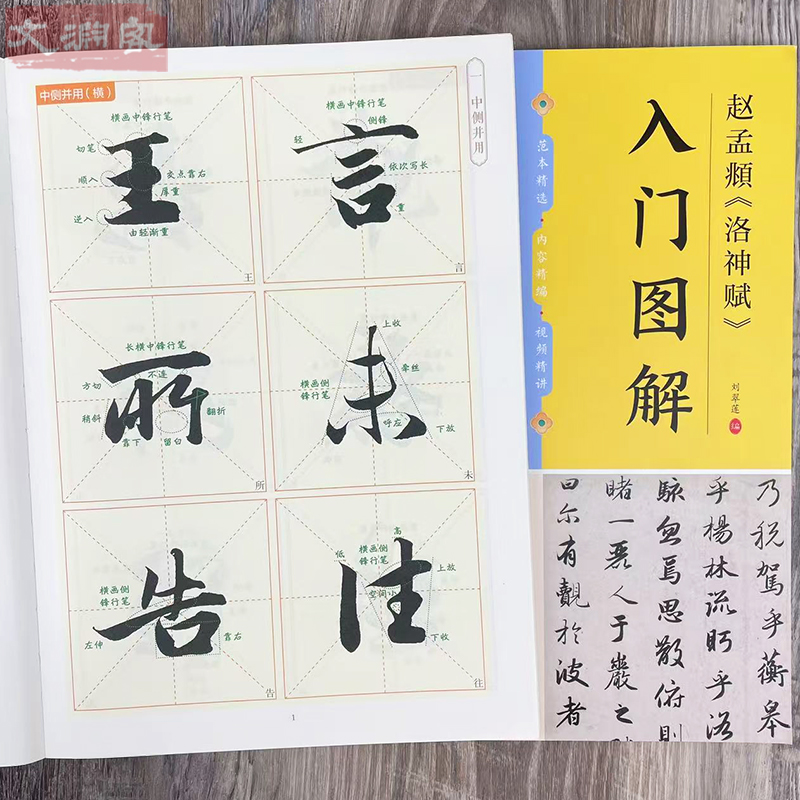 文渊阁
中侧并用（横）
一 中侧并用
横画中锋行笔
切笔
顺入
交点靠右
厚重
逆入
由轻渐重
王
王
横画中锋行笔
侧锋
轻
依次写长
重
言
言
长横中锋行笔
不连
方切
稍斜
翻折
靠下
留白
所
所
上收
牵丝
横画侧
锋行笔
呼左
下放
未
未
横画侧
锋行笔
左伸
靠右
告
告
高
低
横画侧
锋行笔
上放
空间小
下收
往
往
1
赵孟頫《洛神赋》
入门图解
范本精选·内容精编·视频精讲
刘翠莲 编
乃税驾乎蘅皋
乎楊林流眄乎洛
駭忽焉思散俯則
睹一麗人于巖之
曰尔有觀於彼者